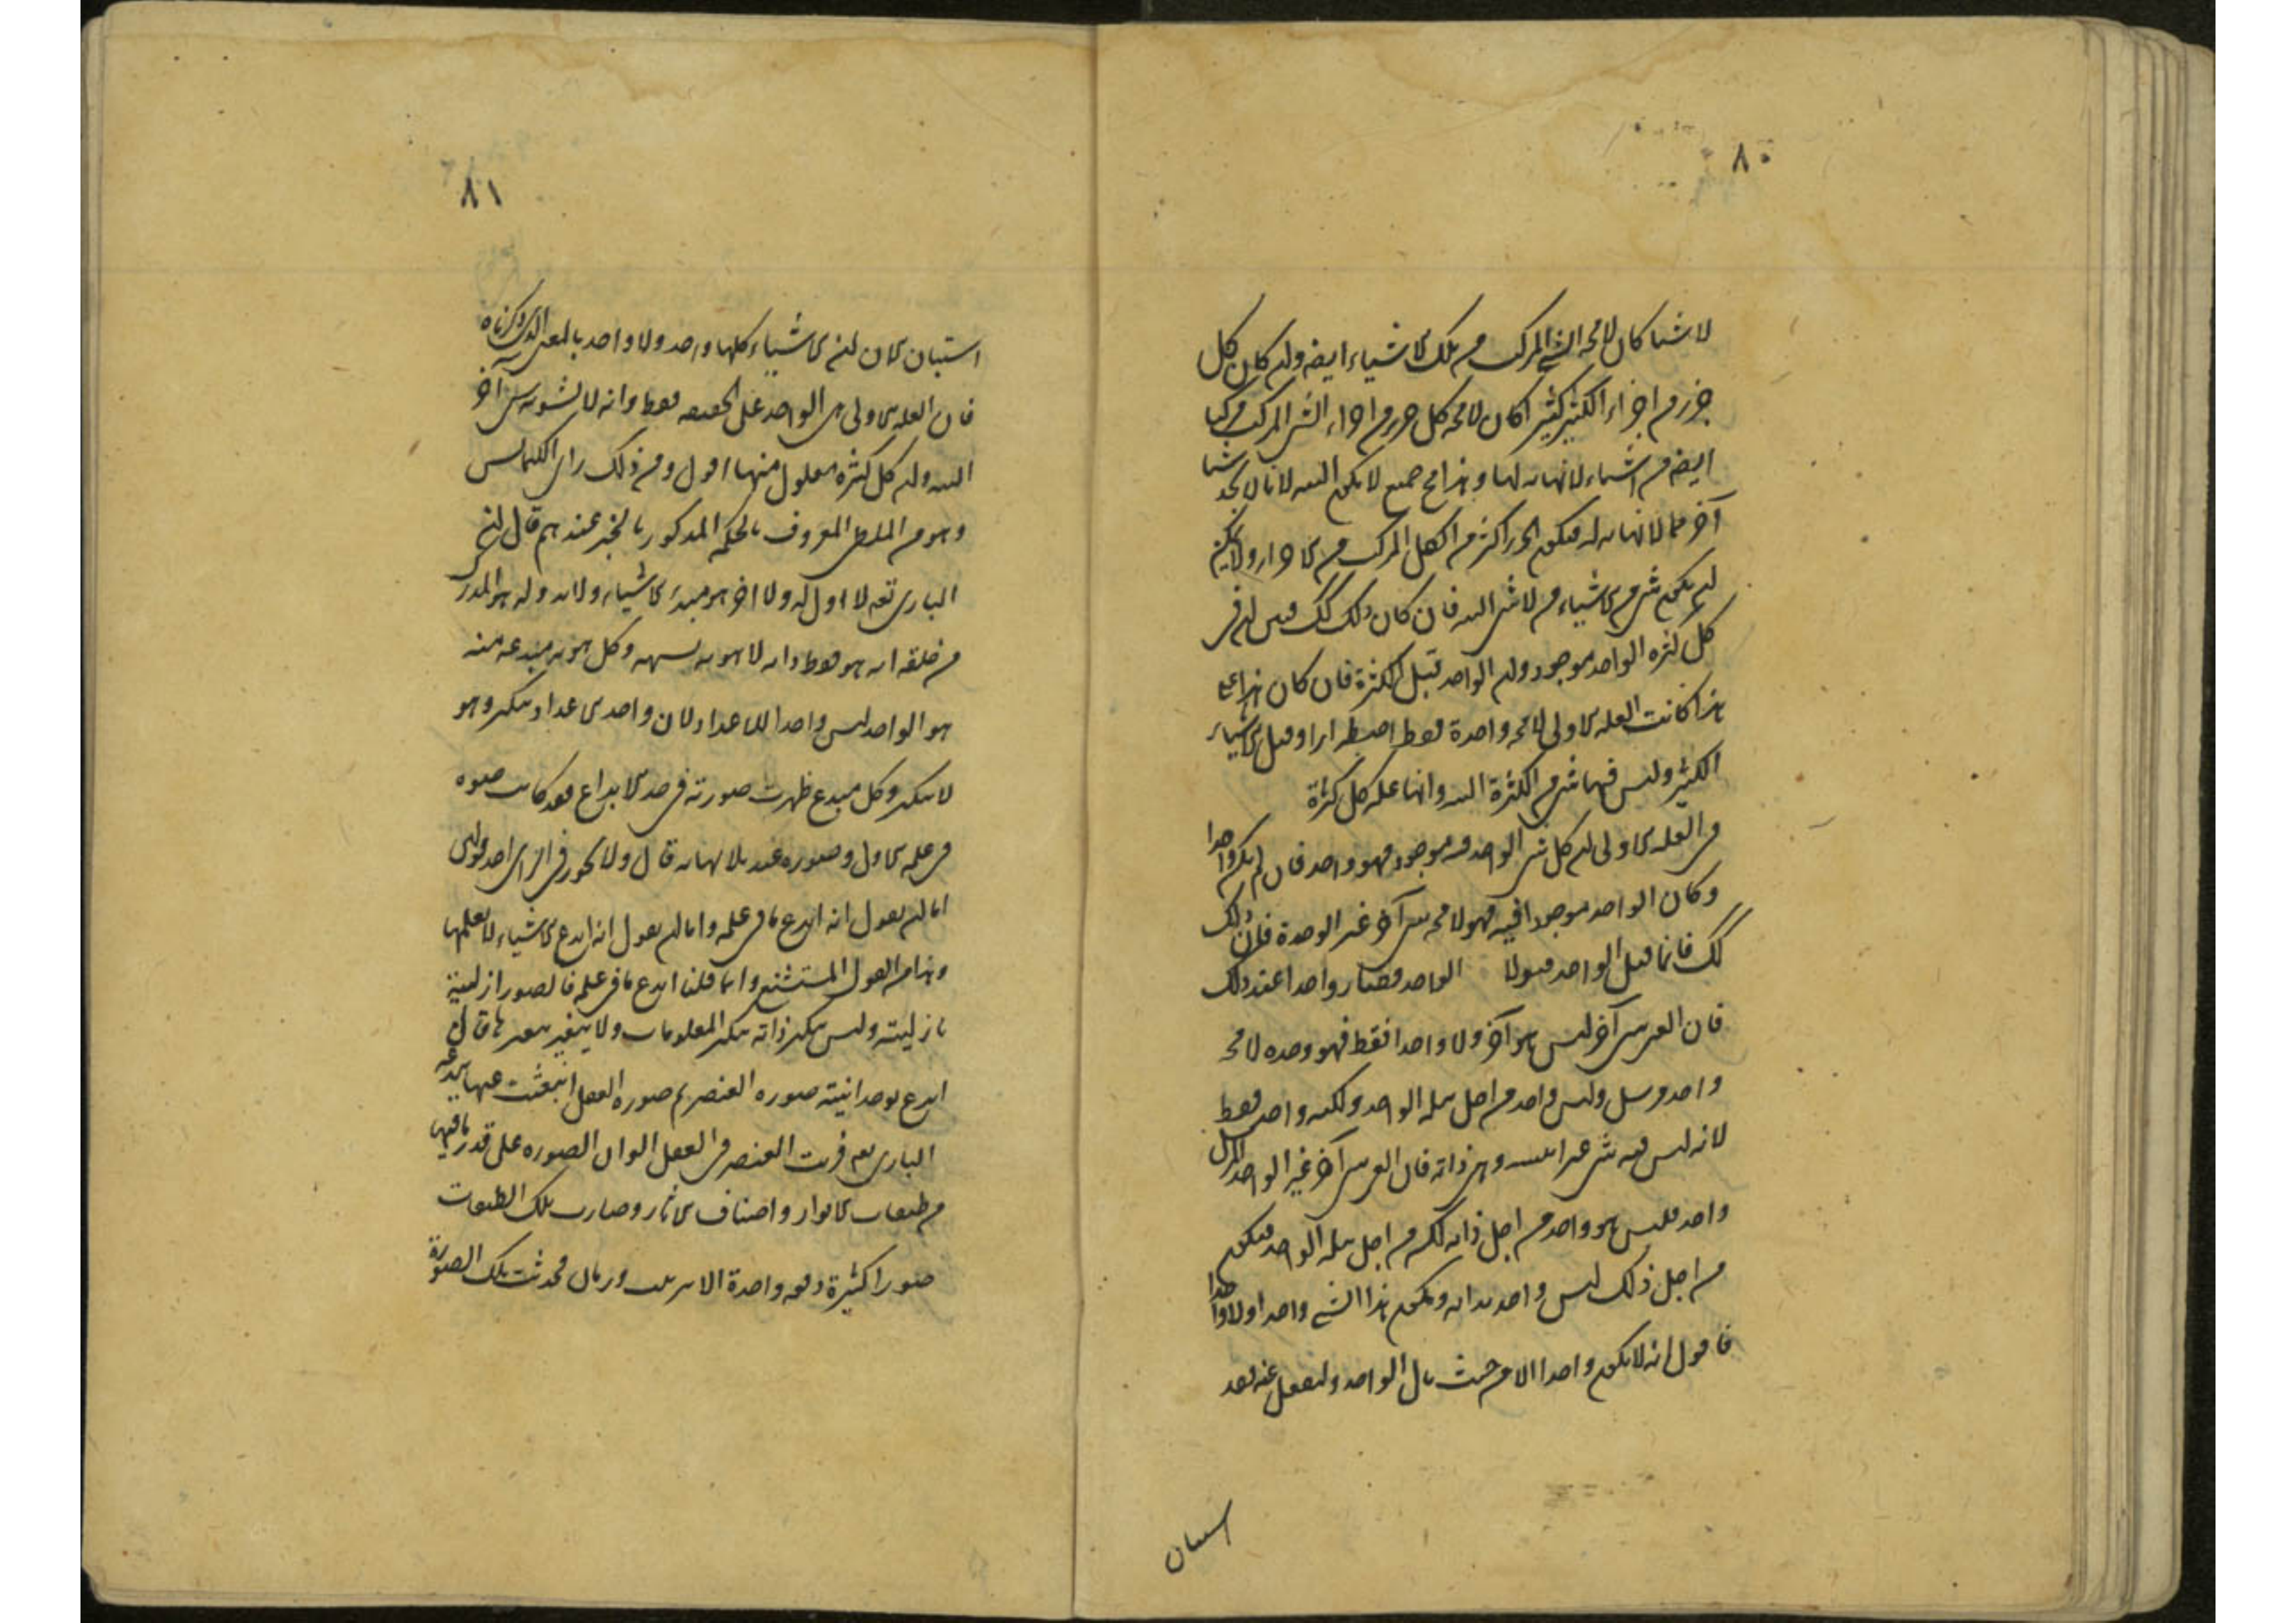 ٨٠
لا شيا كان لا محه الشئ المركب من تلك الاشياء ايضه وان كان كل
جزء من اجزاء الكثير كثيرا كان لا محه كل جزء من اجزاء الشئ المركب مركبا
ايضه من اشياء لا نهايه لها وهذا مح جميع لا يكون البته لانا لا نجد شيا
آخر مما لا نهايه له فيكون الجزء اكثر من الكل المركب من الاجزاء ولا يمكن
ان يكون شئ من الاشياء من لا شئ البته فان كان ذلك كك فبين ان في
كل كثره الواحد موجود وان الواحد قبل الكثرة فان كان هذا على
هذا كانت العله الاولى لا محه واحدة فقط اضطرارا وقبل الاشياء
الكثير وليس فيها شئ من الكثرة البته وانها عله كل كثرة
في العله الاولى ان كل شئ الواحد فيه موجود فهو واحد فان لم يكن واحدا
وكان الواحد موجودا فيه فهو لا محه شئ آخر غير الوحدة فان كان ذلك
كك فانما قبل الواحد قبولا الواحد فصار واحدا عند ذلك
فان الغير شئ آخر ليس هو آخر ولا واحدا فقط فهو وحده لا محه
واحد مرسل وليس واحد من اجل نيله الواحد ولكنه واحد فقط
لانه ليس فيه شئ غير ... وهو ذاته فان الغير شئ آخر غير الواحد المرسل
واحد فليس هو واحد من اجل ذاته لكنه من اجل نيله الواحد فيكون
من اجل ذلك ليس واحد بذاته ويكون هذا الشئ واحدا ولا واحدا
فاقول انه لا يكون واحدا الا من حيث نال الواحد ولينفعل عنه فقد
استبان
٨١
استبان الان ان الاشياء كلها واحد ولا واحد بالمعنى الذي ذكرناه
فان العله الاولى هى الواحد على الحقيقه فقط وانه لا يشوبه شئ آخر
البته وان كل كثره معلول منها اقول ومن ذلك راى انكسيمانس
وهو من الملطى المعروف بالحكمه المذكور بالخير عندهم قال ان
البارى تعه لا اول له ولا اخر هو مبدء الاشياء ولا بدو له هو المدرك
من خلقه انه هو فقط وانه لا هويه تشبهه وكل هويه مبدعه منه
هو الواحد ليس واحد الاعداد لان واحد الاعداد يتكثر وهو
لا يتكثر وكل مبدع ظهرت صورته في حد الابداع فقد كانت صوره
في علمه الاول وصوره عنده بلا نهايه قال ولا يجوز في الراى احد قولين
اما ان يقول انه ابدع ما في علمه واما ان يقول انه ابدع الاشياء لا يعلمها
وهذا من القول المستشنع واما قلنا ابدع ما في علمه فالصور ازلية
بازليته وليس يتكثر ذاته بتكثر المعلومات ولا يتغير بتغيرها قال
ابدع بوحدانيته صوره العنصر ثم صوره العقل انبعثت عنها ببدعه
البارى تعه فرتب العنصر في العقل الوان الصوره على قدر ما فيها
من طبقات الانوار واصناف الاثار وصارت تلك الطبقات
صورا كثيرة دفعه واحدة بلا ترتيب وزمان محدثت تلك الصورة